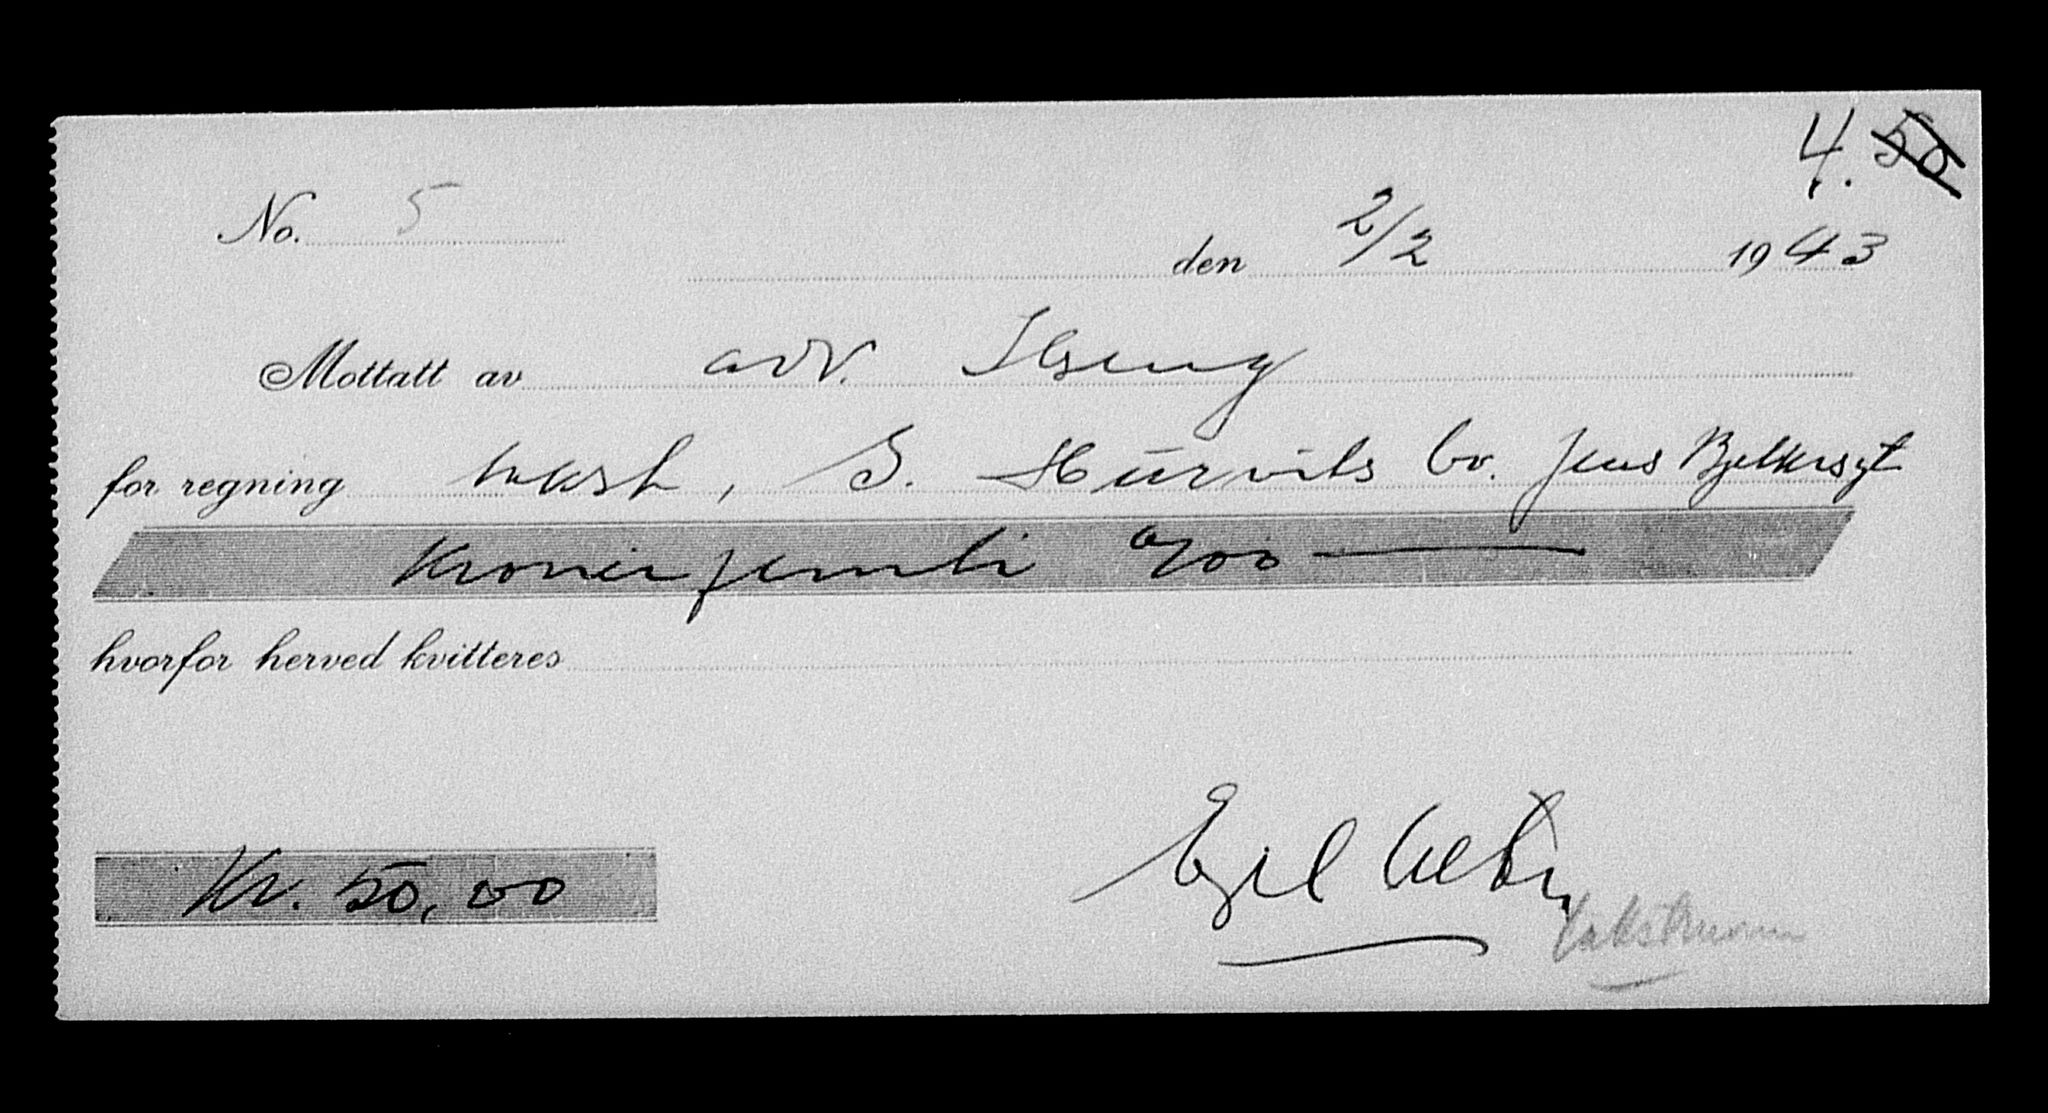 4. 50
No. 5
den 2/2 1943
Mottatt av adv. Ilseng
for regning takst, S. Hurvits bo. Jens Bjelkesgt
Kroner femti %00
hvorfor herved kvitteres
Kr. 50,00
Egil
takstmann